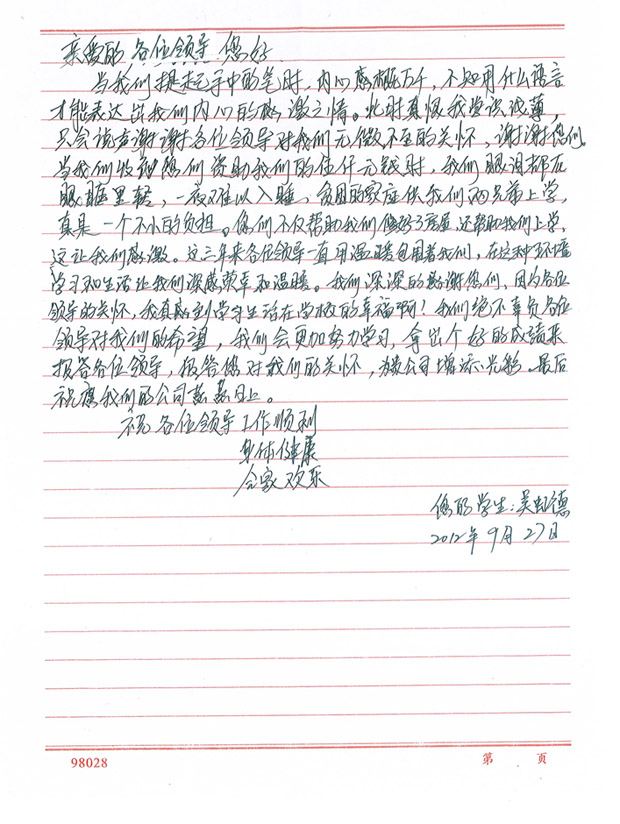 亲爱的各位领导您好
当我们提起手中的笔时，内心感概万千，不知用什么语言
才能表达出我们内心的感激之情。此时真恨我学识浅薄，
只会说声谢谢各位领导对我们无微不至的关怀，谢谢您们。
当我们收到您们资助我们的伍仟元钱时，我们眼泪都在
眼睛里转，一夜难以入睡，贫困的家庭供我们两兄弟上学，
真是一个不小的负担。您们不仅帮助我们修好了房屋，还帮助我们上学，
这让我们感激。这三年来各位领导一直用温暖包围着我们，在这种环境
学习和生活让我们深感荣幸和温暖。我们深深的感谢您们，因为各位
领导的关怀，我真感到学习生活在学校的幸福啊！我们绝不辜负各位
领导对我们的希望，我们会更加努力学习，拿出个好的成绩来
报答各位领导，报答您对我们的关怀，为公司增添光彩。最后
祝愿我们的公司蒸蒸日上。
祝各位领导工作顺利
身体健康
合家欢乐
您的学生：吴 德
2012年9月27日
98028
第 页